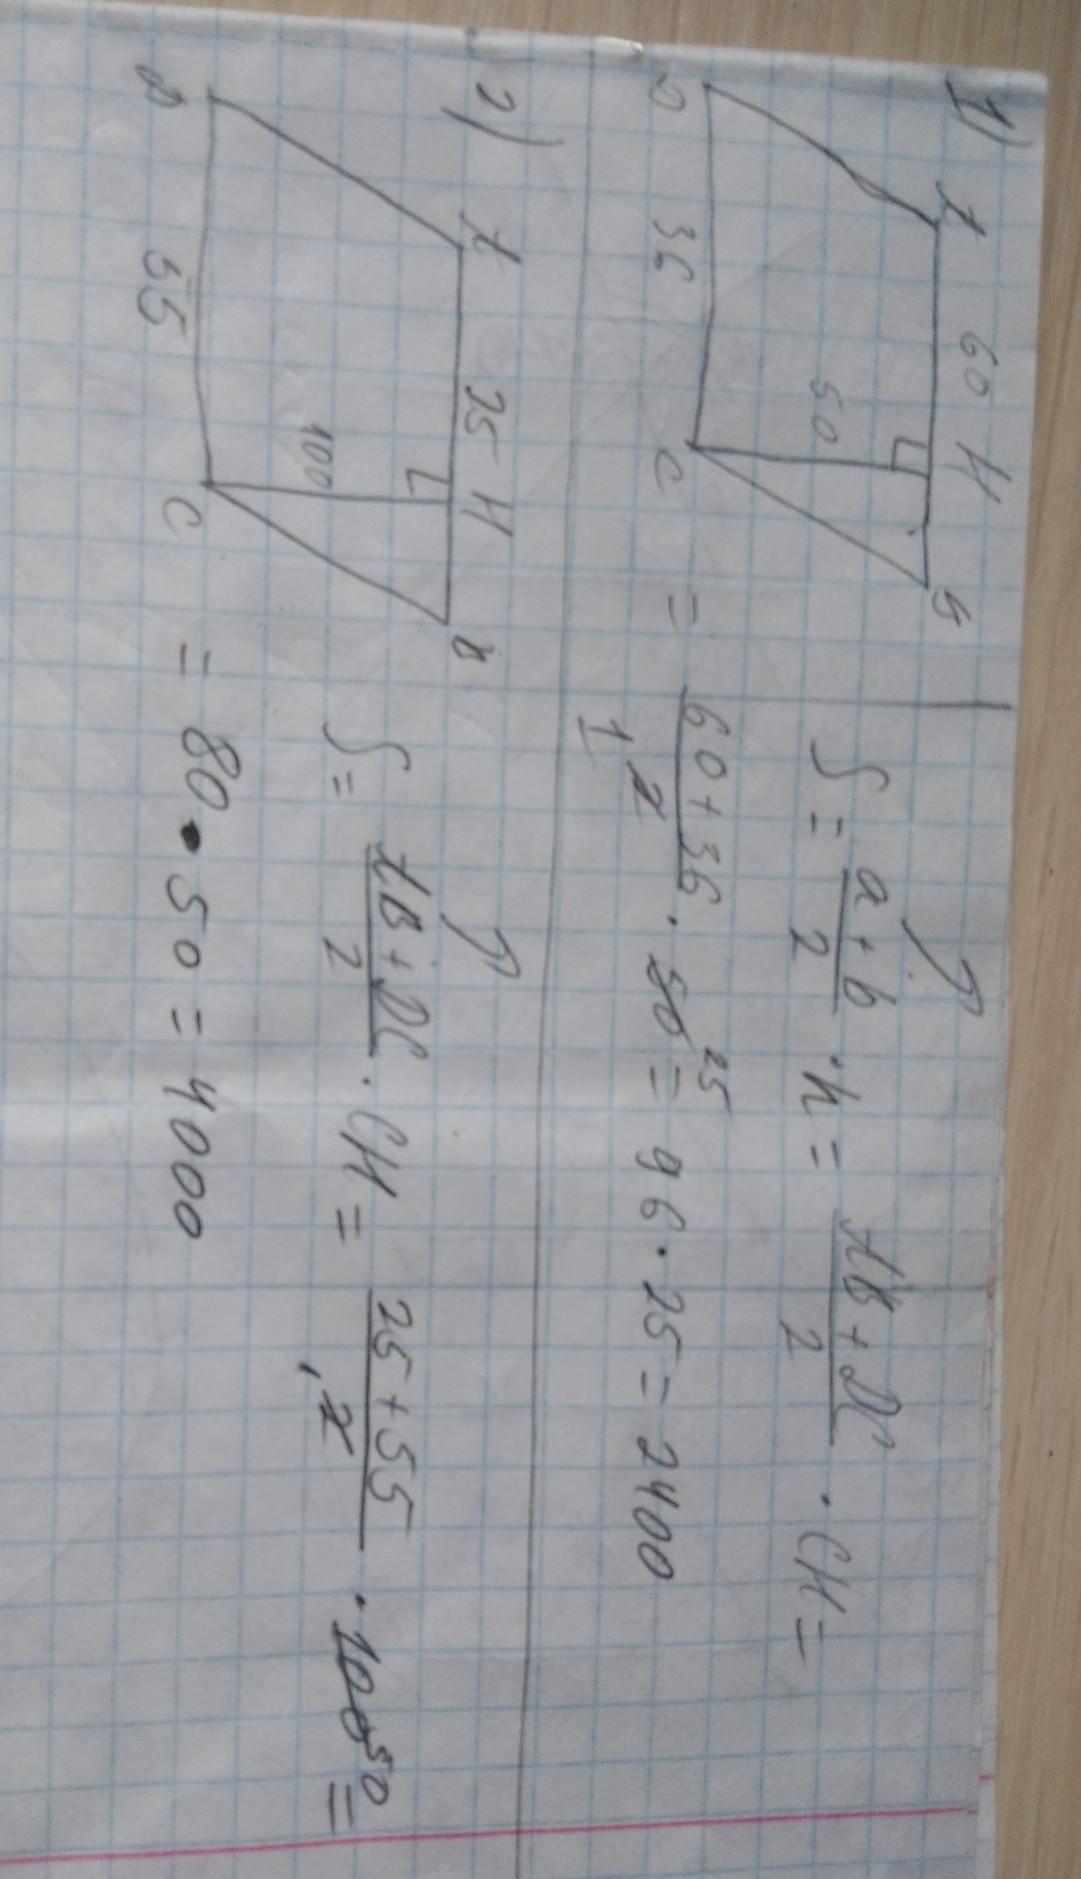 1)
A 60 H B
50
D 36 C
S = a+b/2 · h = AB+DC/2 · CH =
= 60+36/2 1 · 50 25 = 96 · 25 = 2400
2)
A 25 H B
100
D 55 C
S = AB+DC/2 · CH = 25+55/2 1 · 100 50 =
= 80 · 50 = 4000